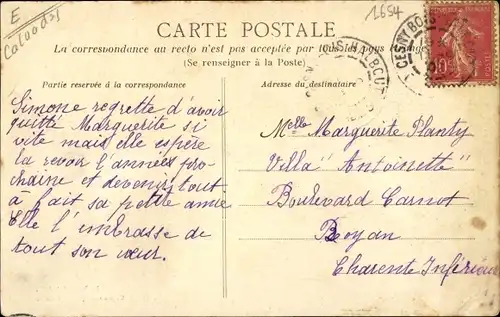 E
Calvados
1654
CARTE POSTALE
La correspondance au recto n'est pas acceptée par tous les pays
(Se renseigner à la Poste)
Partie reservée à la correspondance
Adresse du destinataire
10c
Simone regrette d'avoir
quitté Marguerite si
vite mais elle espère
la revoir l'années pro-
chaine et devenir tout
à fait sa petite amie
Elle l'embrasse de
tout son cœur.
Melle Marguerite Planty
Villa "Antoinette"
Boulevard Carnot
Royan
Charente Inférieure